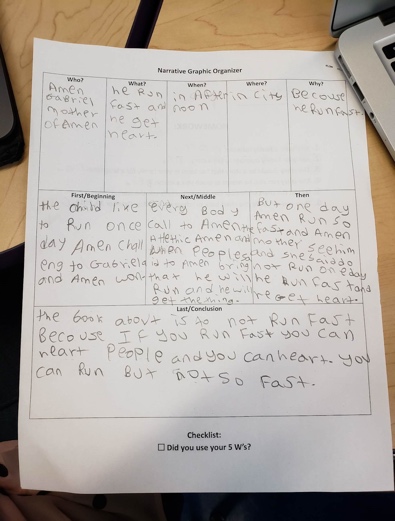 Narrative Graphic Organizer
Who?
Amen
Gabriel
mother
of Amen
What?
he Run
Fast and
he get
heart.
When?
in After
noon
Where?
in City
Why?
Becouse
he Run fast.
First/Beginning
the child like
to Run once
day Amen Chall
eng to Gabriel
and Amen won
Next/Middle
every Body
call to Amen the
Athletic Amen and
when Peoples
said to Amen bring
that he will
Run and he will
get the ring.
Then
But one day
Amen Run so
fast and Amen
mother see him
and she said do
not Run oneday
he Run fast and
he get heart.
Last/Conclusion
the book about is to not Run Fast
Becouse IF you Run Fast you Can
heart People and you can heart. you
can Run But not so Fast.
Checklist:
☐ Did you use your 5 W's?